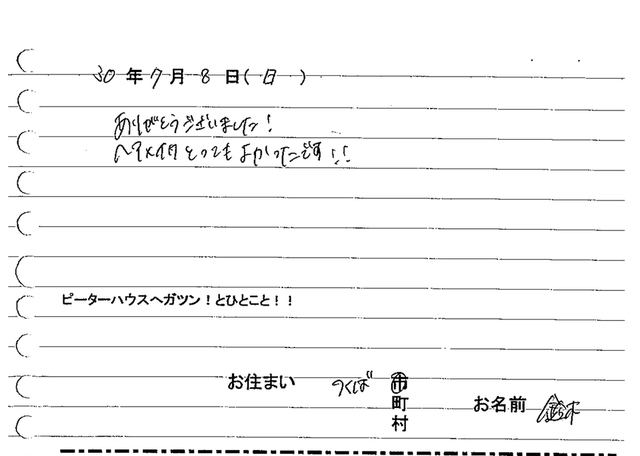 30年7月8日(日)
ありがとうございました!
とってもよかったです!!
ピーターハウスへガツン!とひとこと!!
お住まい つくば 市
町
村
お名前 鈴木